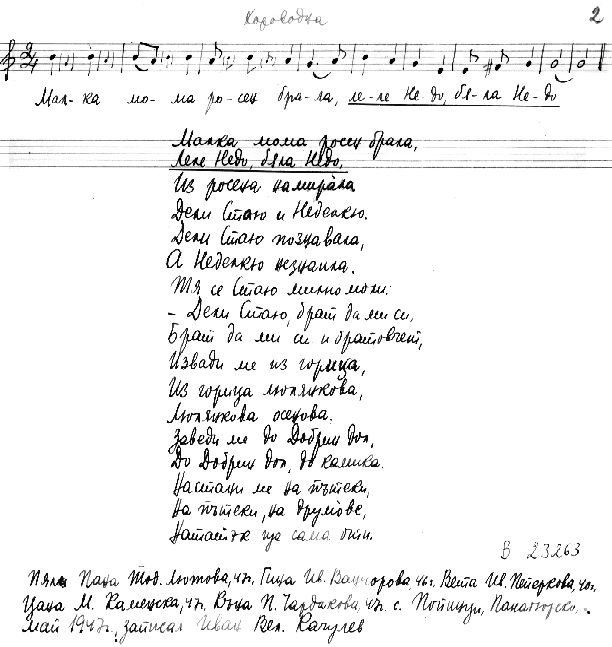 Хороводна
2
Мал-ка мо-ма ро-сен бра-ла, ле-ле Не-до, бя-ла Не-до
Малка мома росен брала,
Леле Недо, бяла Недо,
Из росена намирала
Дели Стаю и Неделкю.
Дели Стаю познавала,
А Неделкю незнаила.
Тя се Стаю милно моли:
– Дели Стаю, брат да ми си,
Брат да ми си и братовчет,
Изведи ме из горица,
Из горица люлякова,
Люлякова осенова.
Заведи ме до Добрин дол,
До Добрин дол, до калика.
Настани ме на пътеки,
На пътеки, на друмове,
Нататък ще сама бяги.
В 23263
Пяли Пана Тод. Лютова, 47г, Гина Ив. 46г. Вета Ив. 40г.
Цана М. Каменска, 47г. П. Чардакова, 47г. с. Панагюрско, -
май 1947г., записал Иван Вел. Качулев